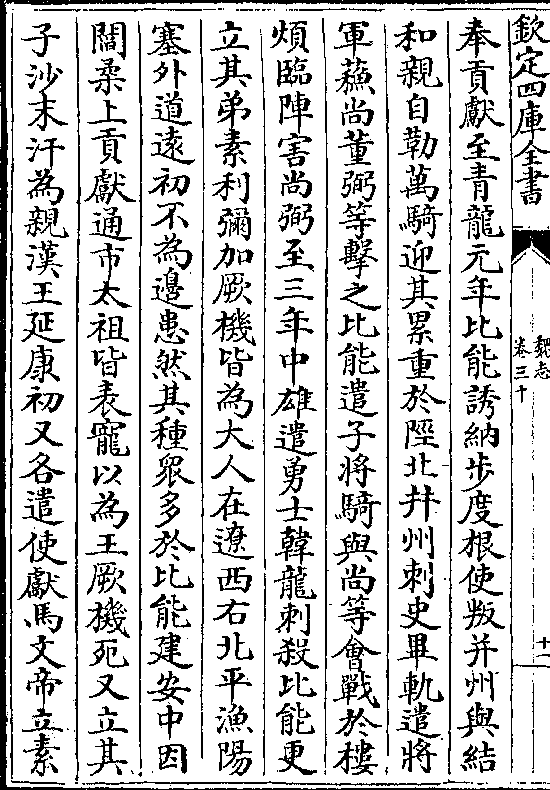 欽定四庫全書
魏志
卷三十
十一
奉貢獻至青龍元年比能誘納步度根使叛并州與結
和親自勒萬騎迎其累重於陘北并州刺史畢軌遣將
軍蘇尚董弼等擊之比能遣子將騎與尚等會戰於樓
煩臨陣害尚弼至三年中雄遣勇士韓龍刺殺比能更
立其弟素利彌加厥機皆為大人在遼西右北平漁陽
塞外道遠初不為邊患然其種眾多於比能建安中因
閻柔上貢獻通市太祖皆表寵以為王厥機死又立其
子沙末汗為親漢王延康初又各遣使獻馬文帝立素